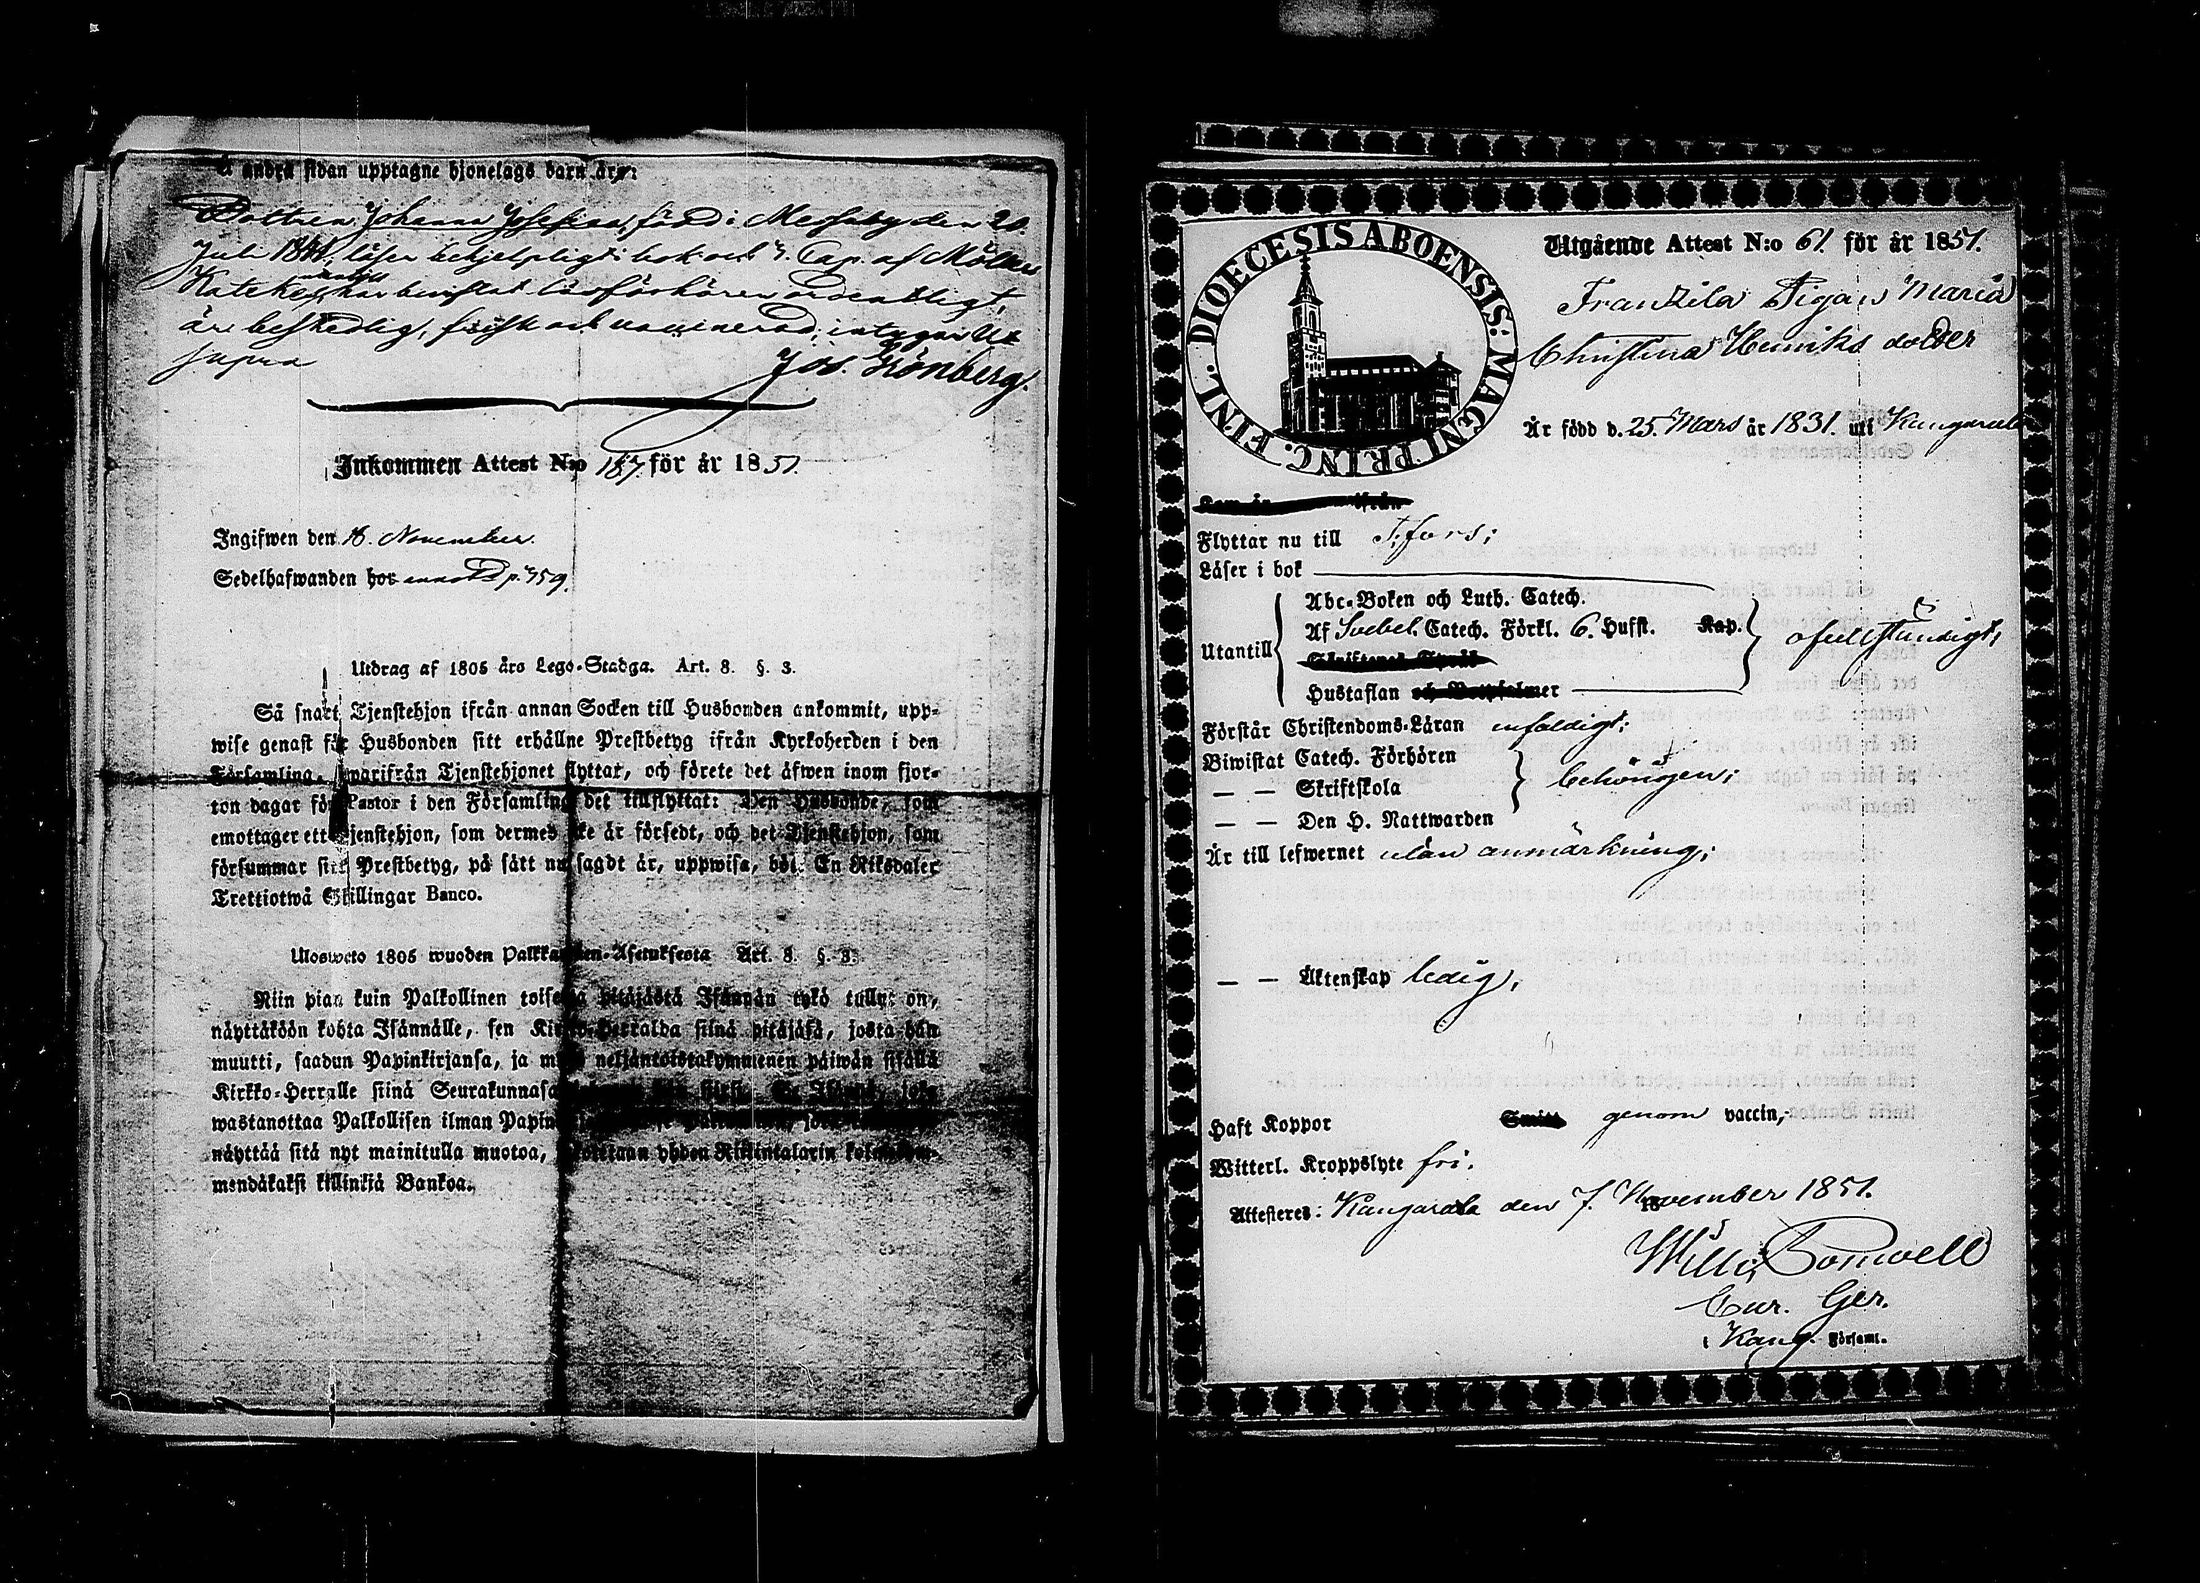 å andra sidan upptagne hjonelags barn äro:
Dottren Johanna Josefina, född i Messuby den 20.
Juli 1841, läser behjelpligt i bok och 4. Cap. af Möllers
Kateches, har bevistat läsförhören ordentligt,
är beskedlig, frisk och vaccinerad; intygar Ut
supra Jos. Grönberg.
Inkommen Attest N:o 187 för år 1851.
Ingifwen den 18. November.
Sedelhafwanden hos p. 759.
Utdrag af 1805 års Lego-Stadga. Art. 8. §. 3.
Så snart Tjenstehjon ifrån annan Socken till Husbonden ankommit, upp-
wise genast för Husbonden sitt erhållne Prestbetyg ifrån Kyrkoherden i den
Församling, hwarifrån Tjenstehjonet flyttat, och förete det äfwen inom fjor-
ton dagar för Pastor i den Församling det tillflyttat: Den Husbonde, som
emottager ett Tjenstehjon, som dermed icke är försedt, och det Tjenstehjon, som
försummar sitt Prestbetyg, på sätt nu sagdt är, uppwisa, böte En Riksdaler
Trettiotwå Skillingar Banco.
Ulosweto 1805 wuoden Palkkawäen-Asetuksesta Art. 8. §. 3.
Niin pian kuin Palkollinen toisesta pitäjästä Isännän tykö tullut on,
näyttäköön kohta Isännälle, sen Kirkko-Herralda siinä pitäjäsä, josta hän
muutti, saadun Papinkirjansa, ja myös neljäntoistakymmenen päiwän sisällä
Kirkko-Herralle siinä Seurakunnasa
wastanottaa Palkollisen ilman Papin
näyttää sitä nyt mainitulla muotoa, wetetään yhden Riikintalarin kolmekym-
mendäkaksi killinkiä Bankoa.
DIOECESIS ABOENSIS: MAGNI PRINC. FINL.
Utgående Attest N:o 61 för år 1851.
Franzila Pigan Maria
Christina Henriks dotter
Är född d. 25. Mars år 1831. uti Kangasala
Kom år ifrån
Flyttar nu till T:fors;
Läser i bok
Utantill
Abc-Boken och Luth. Catech.
Af Svebel. Catech. Förkl. 6. Hufst. Kap.
Skriftenes Språk
Hustaflan och Botpsalmer
ofullständigt;
Förstår Christendoms-Läran enfaldigt;
Biwistat Catech. Förhören
— — Skriftskola
— — Den H. Nattwarden
behörigen;
Är till lefwernet utan anmärkning;
— — Äktenskap ledig,
Haft Koppor Smitt genom vaccin,
Witterl. Kroppslyte fri.
Attesteres: Kangasala den 7. November 1851.
Wilh. Bonwell
Cur. Ger.
i Kang. Församl.